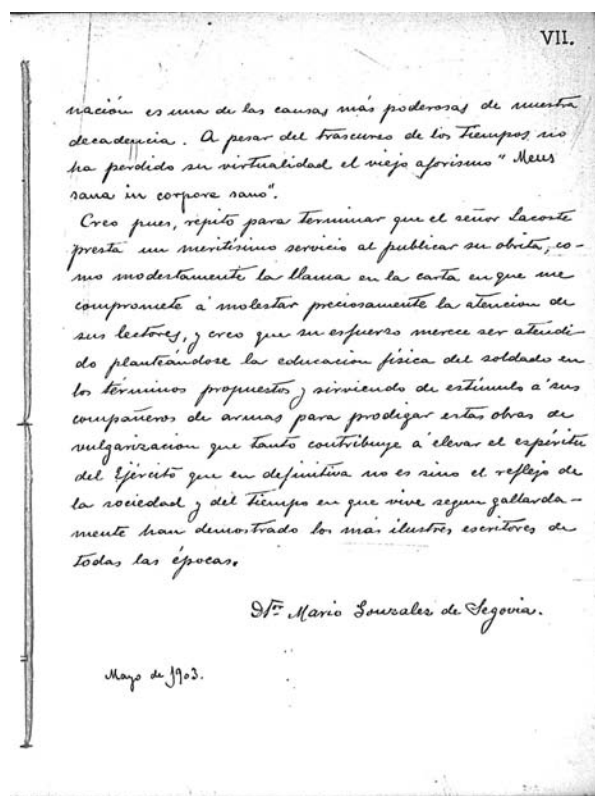 VII.
nación es una de las causas más poderosas de nuestra
decadencia. A pesar del trascurso de los tiempos, no
ha perdido su virtualidad el viejo aforismo "Mens
sana in corpore sano".
Creo pues, repito para terminar que el señor Lacoste
presta un meritísimo servicio al publicar su obrita, co-
mo modestamente la llama en la carta en que me
compromete á molestar preciosamente la atencion de
sus lectores, y creo que su esfuerzo merece ser atendi-
do planteándose la educacion física del soldado en
los términos propuestos y sirviendo de estímulo á sus
compañeros de armas para prodigar estas obras de
vulgarizacion que tanto contribuye á elevar el espíritu
del Ejército que en definitiva no es sino el reflejo de
la sociedad y del tiempo en que vive segun gallarda-
mente han demostrado los más ilustres escritores de
todas las épocas.
Mario Gonzalez de Segovia.
Mayo de 1903.